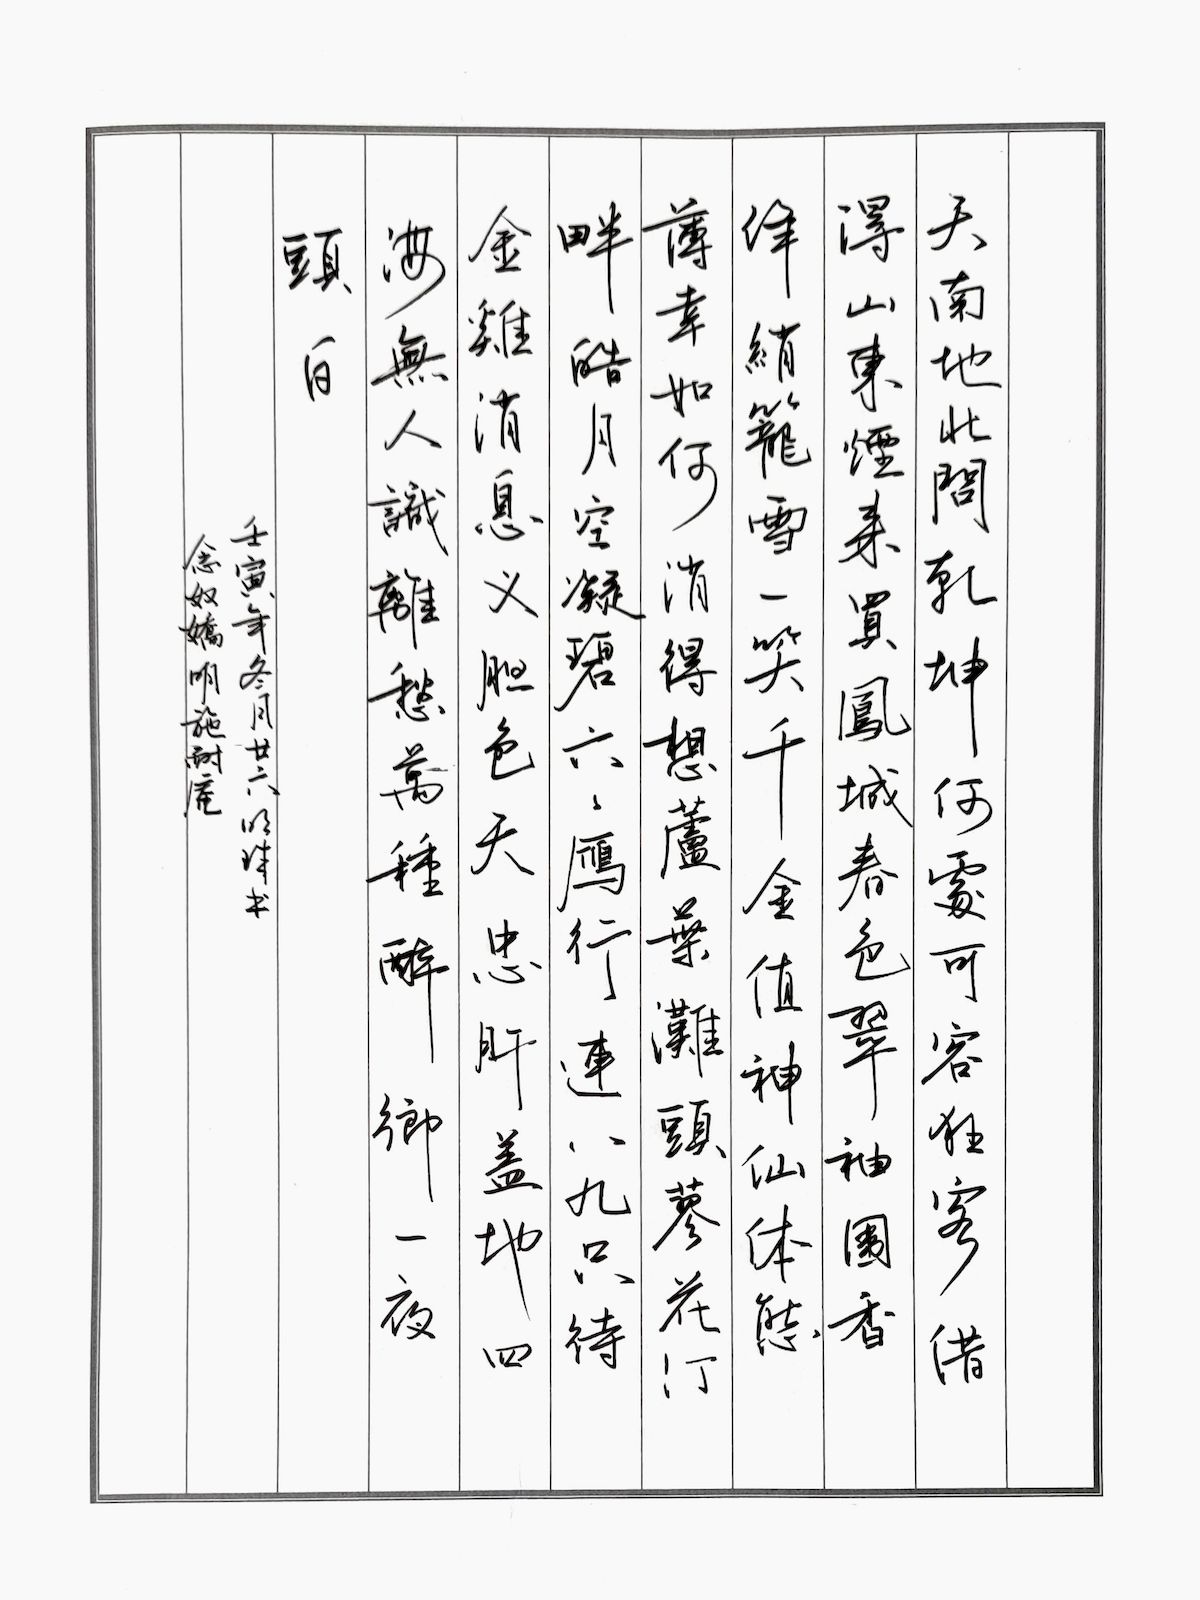 天南地北問乾坤何處可容狂客借
得山東煙來買鳳城春色翠袖圍香
絳綃籠雪一笑千金值神仙体態
薄幸如何消得想蘆葉灘頭蓼花汀
畔皓月空凝碧六〻鴈行連八九只待
金雞消息义胆包天忠肝蓋地四
海無人識離愁萬種醉鄉一夜
頭白
壬寅年冬月廿六 书
念奴嬌明施耐庵